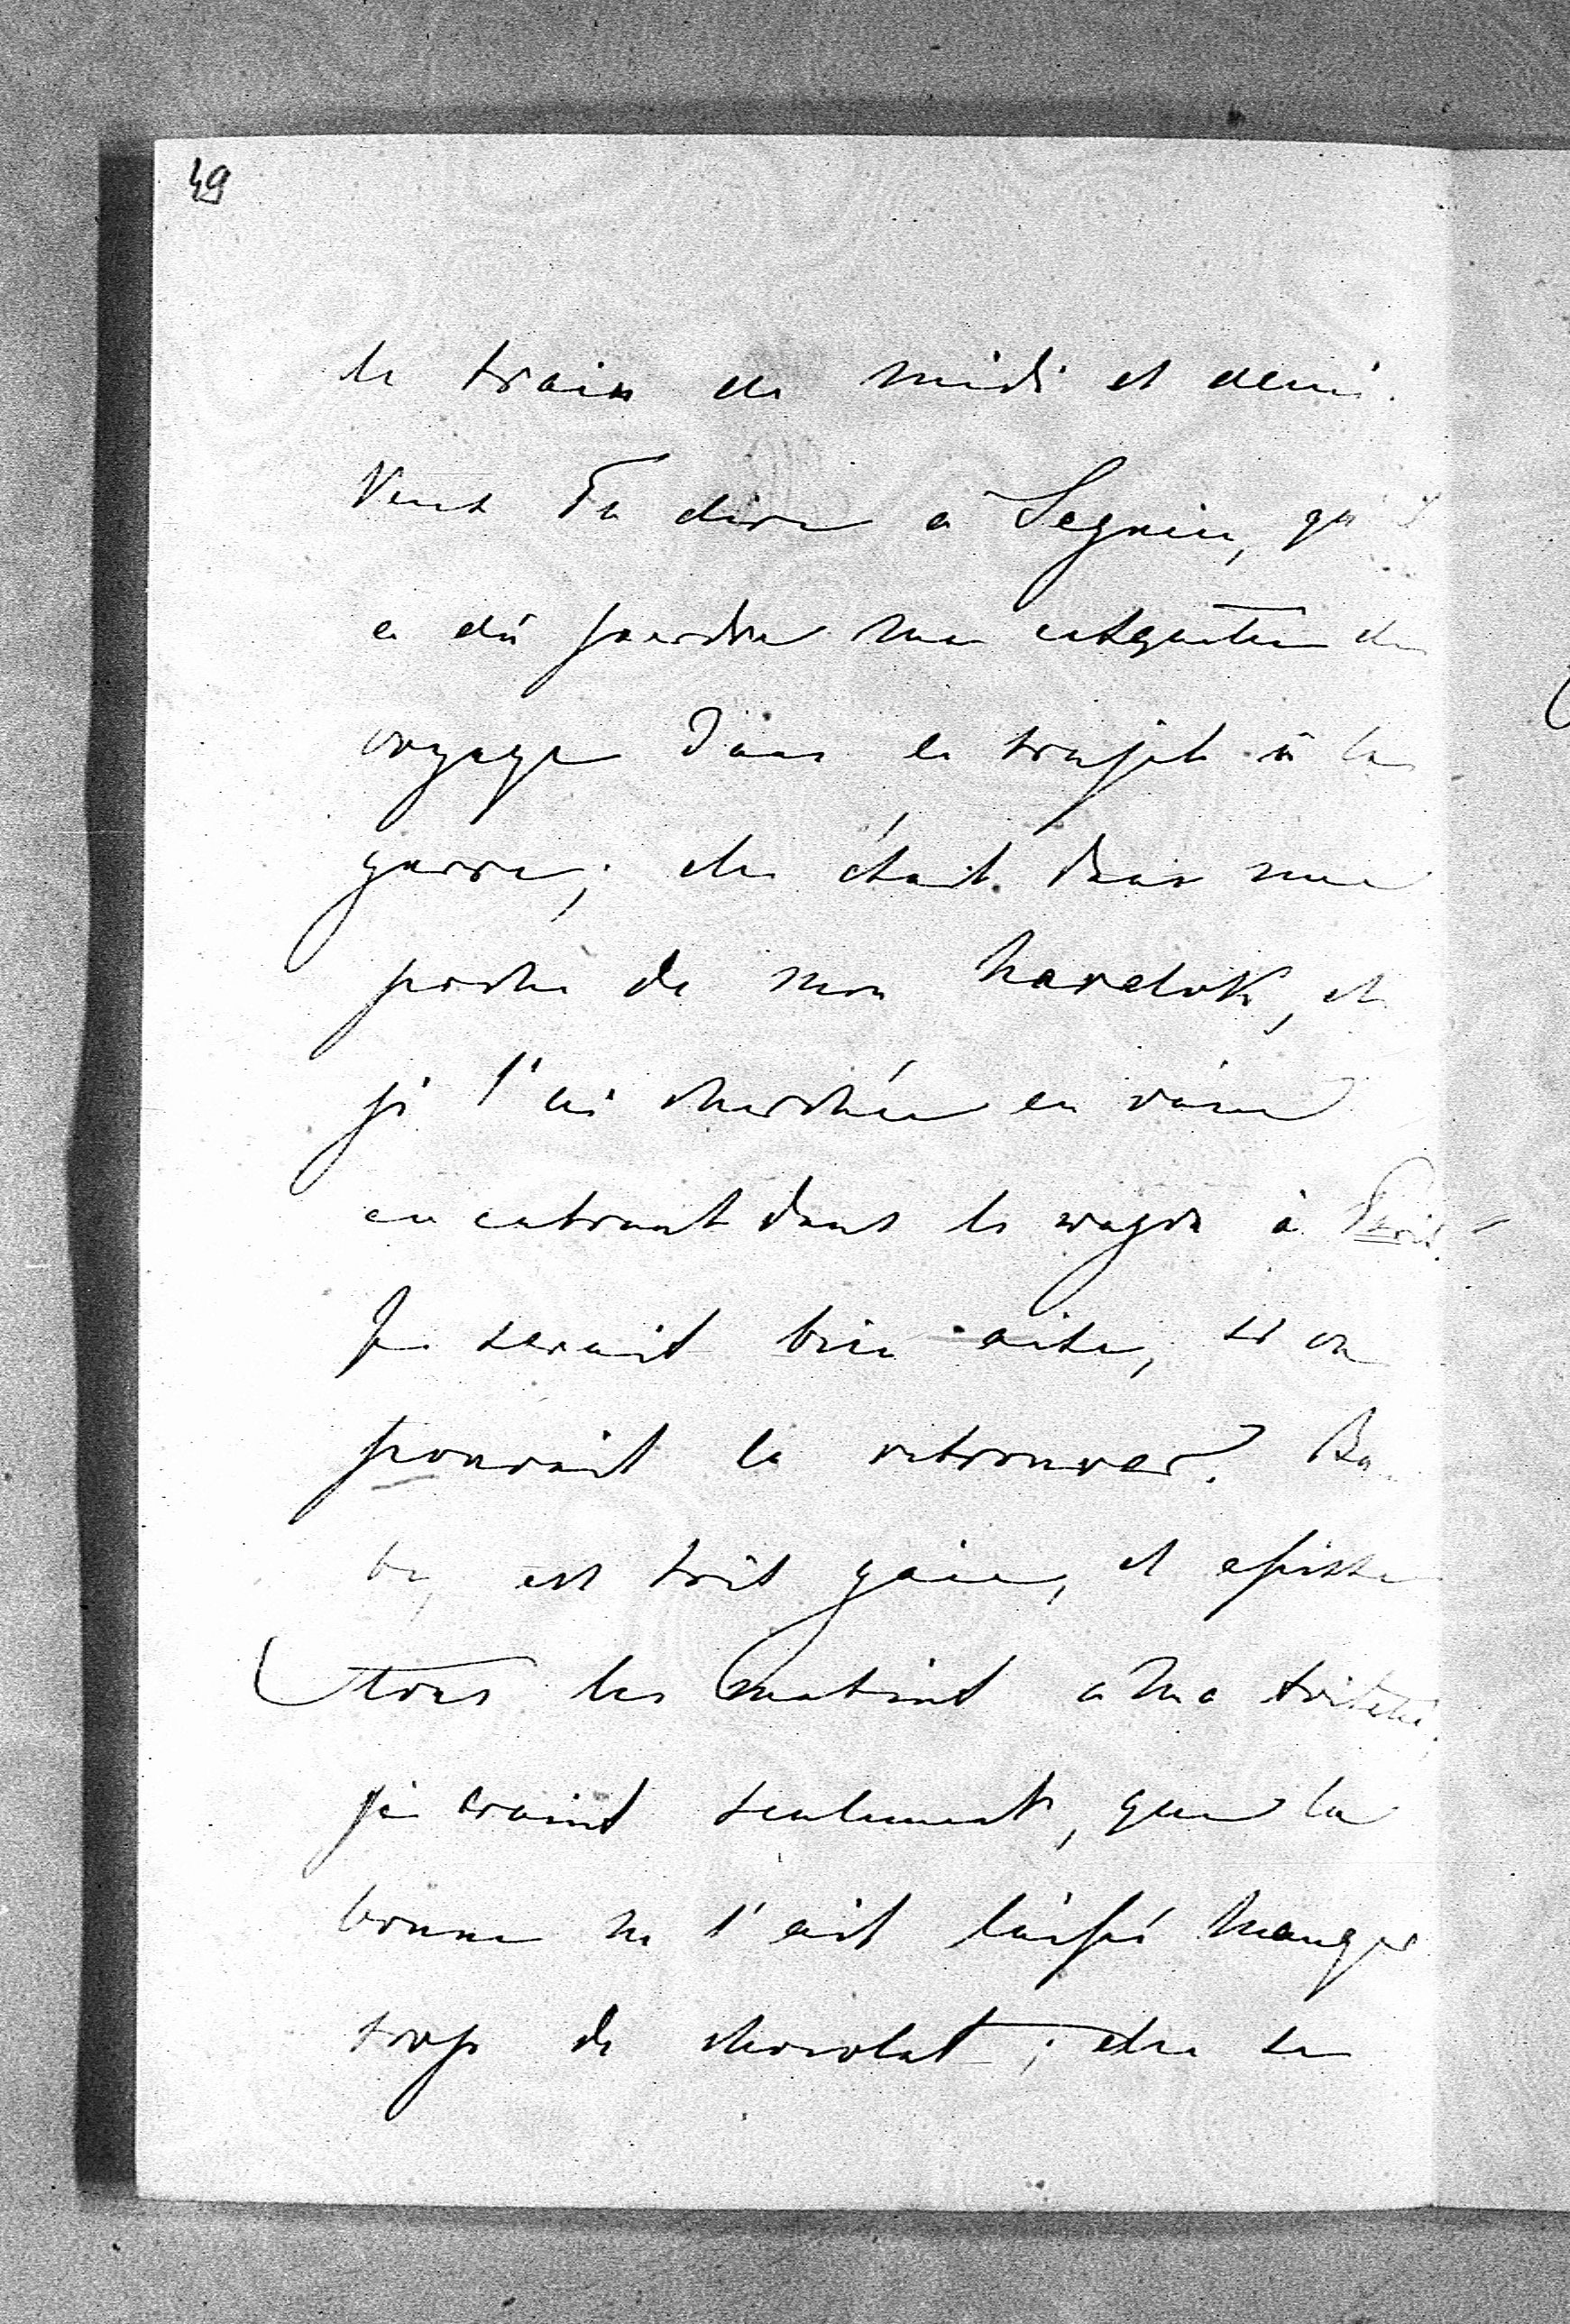 49
le train de midi et demi.
Veux Tu dire à Seguin, qu'il
a dû perdre ma casquette de
voyage dans le trajet à la
garre; elle était dans une
poche de mon havelok, et
je l'ai cherchée en vain
en entrant dans le wagon à Paris.
Je serait bien aise, si on
pouvait la retrouver. Ba-
by est très gaie, et assiste
tous les matins a ma toilette,
je craint seulement, que la
bonne ne l'ait laissé manger
trop de chocolat; elle se